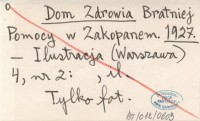 Dom Zdrowia Bratniej
Pomocy w Zakopanem. 1927.
— Ilustracja (Warszawa)
4, nr 2: , il.
Tylko fot.